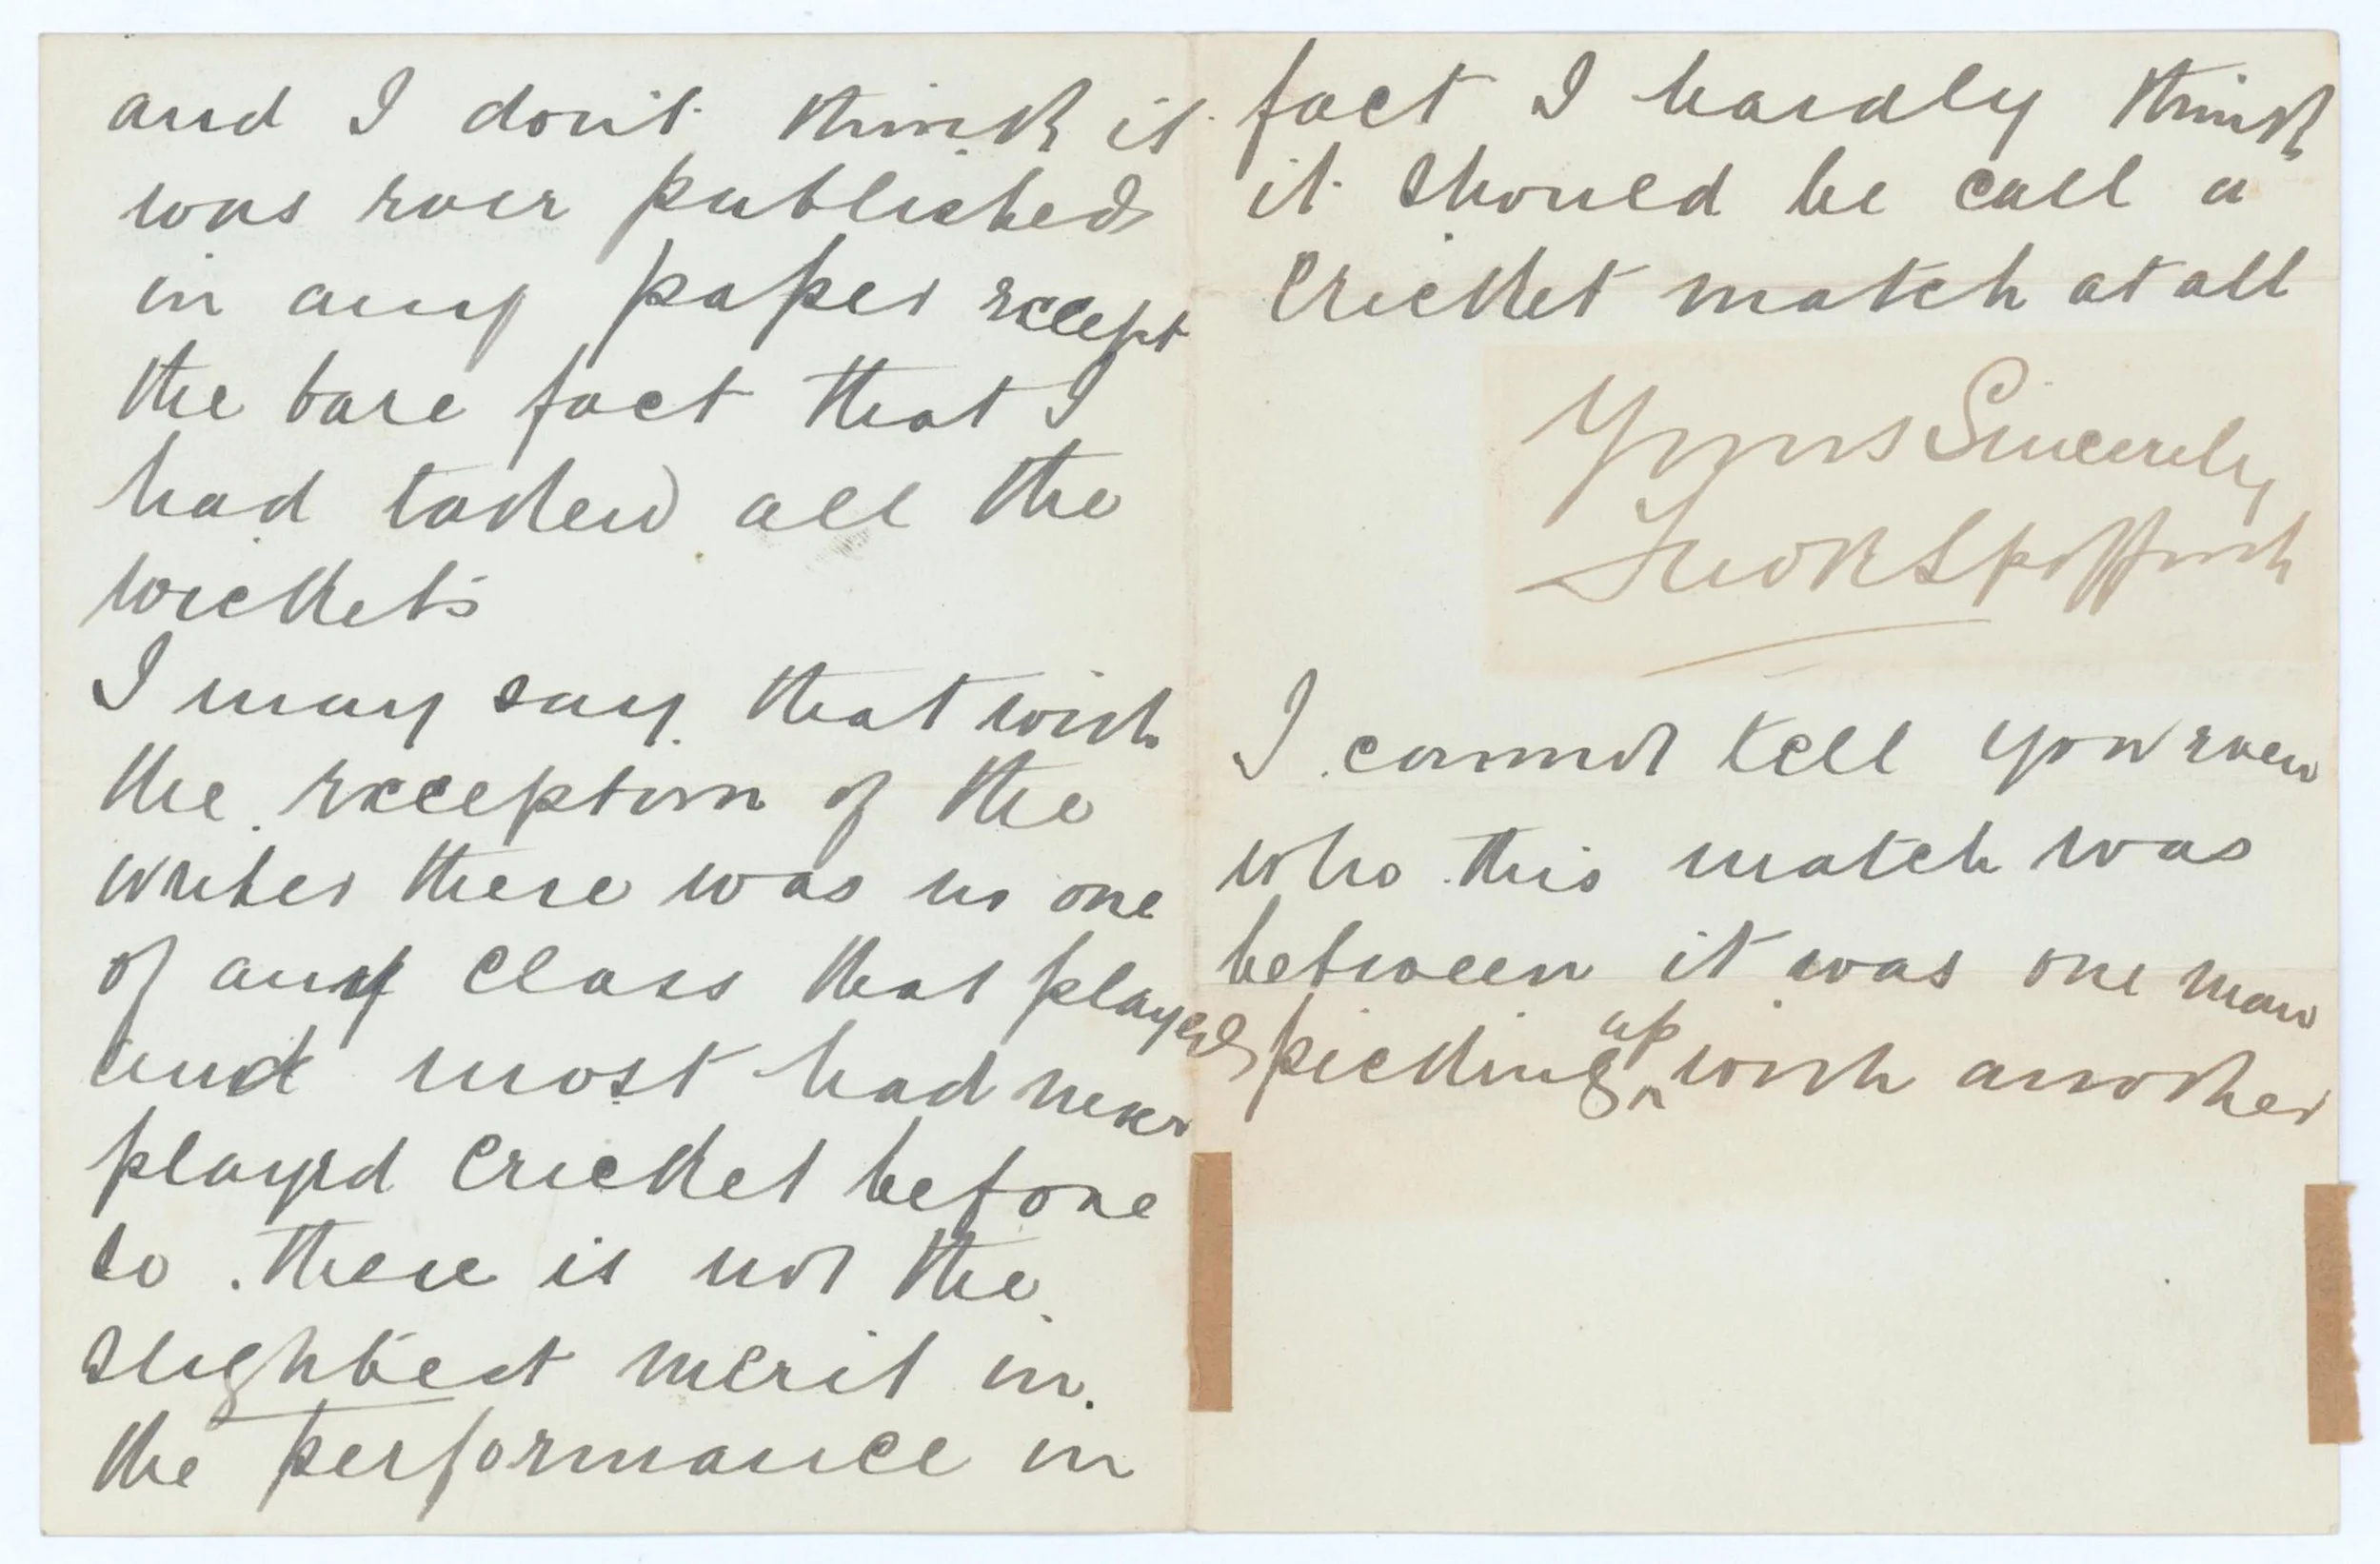 and I don't think it
was ever published
in any paper except
the bare fact that I
had taken all the
wickets
I may say that with
the exception of the
writer there was no one
of any class that played
and most had never
played cricket before
so there is not the
slightest merit in
the performance in
fact I hardly think
it should be call a
cricket match at all
Yours Sincerely
Fredk Spofforth
I cannot tell you even
who this match was
between it was one man
picking up with another